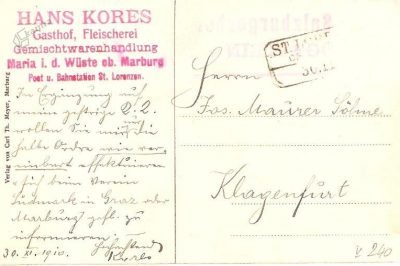 HANS KORES
Gasthof, Fleischerei
Gemischtwarenhandlung
Maria i. d. Wüste ob. Marburg
Post u. Bahnstation St. Lorenzen.
In Ergänzung auf
meine gestrige
wollen Sie mir die
halbe Ordre wie ver
einbart effektuieren
sich beim Verein
Südmark in Graz oder
Marburg gefl. zu
informieren.
Hochachtend
Kores
30. XI. 1910.
Verlag von Carl Th. Meyer, Marburg
ST.
30.
Herren
Jos. Maurer Söhne
Klagenfurt
240